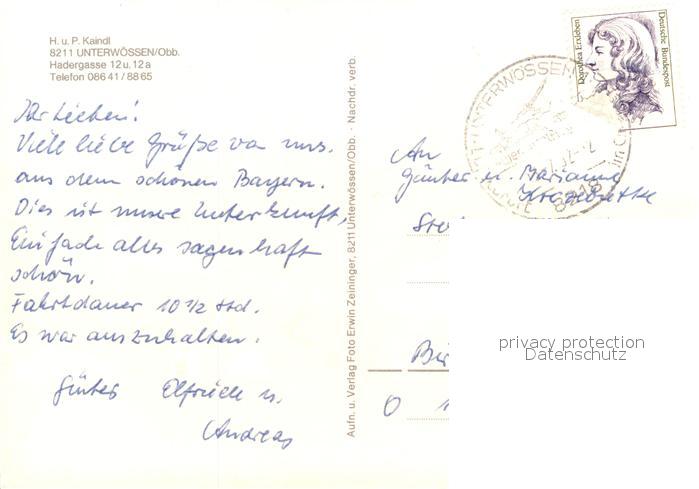 H. u. P. Kaindl
8211 UNTERWÖSSEN/Obb.
Hadergasse 12 u. 12 a
Telefon 0 86 41 / 88 65
Ihr Lieben!
Viele liebe Grüße von uns.
aus dem schönen Bayern.
Dies ist unsere Unterkunft,
Einfach alles sagenhaft
schön.
Fahrtdauer 10 1/2 Std.
Es war auszuhalten.
Günter Elfriede u.
Andreas
Aufn. u. Verlag Foto Erwin Zeininger, 8211 Unterwössen/Obb. · Nachdr. verb.
Dorothea Erxleben
Deutsche Bundespost
UNTERWÖSSEN
8218
An
Günter u. Marianne
O 1
privacy protection
Datenschutz